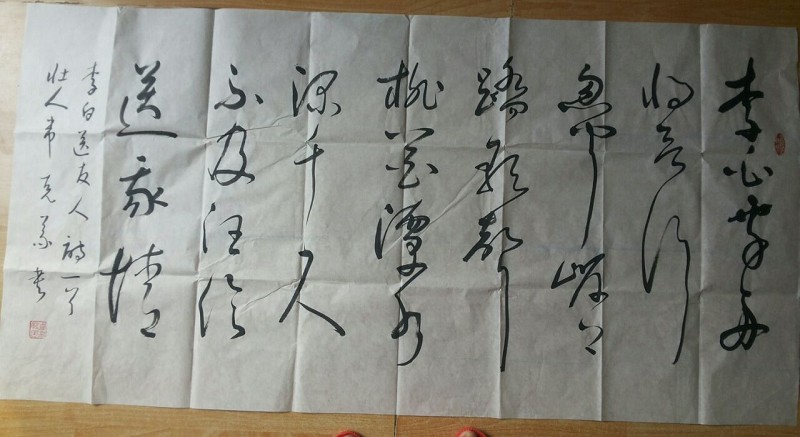 李白乘舟
将欲行
忽闻岸上
踏歌声
桃花潭水
深千尺
不及汪伦
送我情
李白送友人诗一首
壮人韦克义书